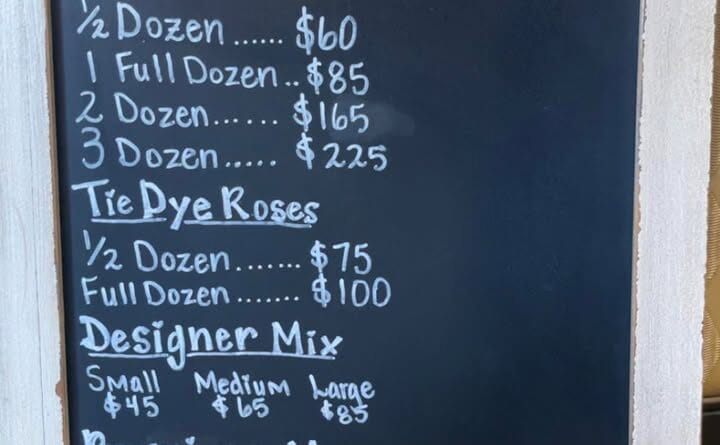 ½ Dozen ...... $60
1 Full Dozen .. $85
2 Dozen...... $165
3 Dozen..... $225
Tie Dye Roses
½ Dozen....... $75
Full Dozen ....... $100
Designer Mix
Small Medium Large
$45 $65 $85